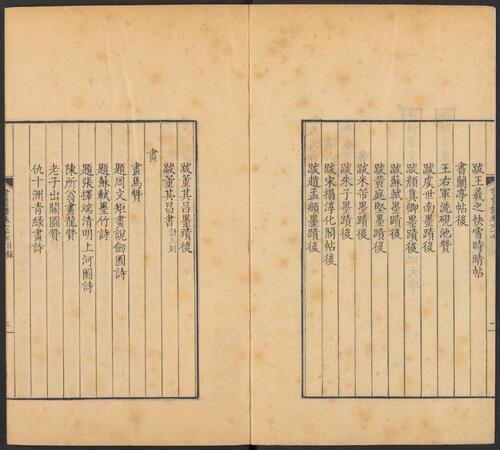 跋王羲之快雪時晴帖
書蘭亭帖後
王右軍洗硯池贊
跋虞世南墨蹟後
跋顏真卿墨蹟後
跋蘇軾墨蹟後
跋黃庭堅墨蹟後
跋米芾墨蹟後
跋朱子墨蹟後
跋宋搨淳化閣帖後
跋趙孟頫墨蹟後
跋董其昌墨蹟後
跋董其昌書計三則
畫
畫馬贊
題周文矩畫說劍圖詩
題蘇軾墨竹詩
題張擇端清明上河圖詩
陳所翁畫龍贊
老子出關圖贊
仇十洲青綠畫詩
目錄